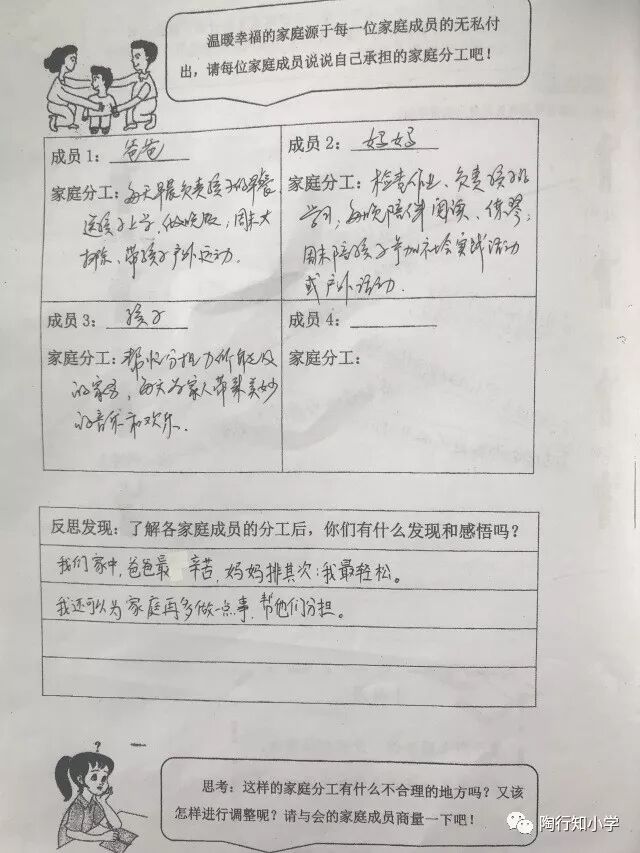 温暖幸福的家庭源于每一位家庭成员的无私付
出，请每位家庭成员说说自己承担的家庭分工吧！
成员1：爸爸
家庭分工：每天早晨负责孩子的早餐
送孩子上学，做晚饭，周末大
扫除、带孩子户外运动．
成员2：妈妈
家庭分工：检查作业、负责孩子的
学习，每晚陪伴阅读、练琴，
周末陪孩子参加社会实践活动
或户外活动．
成员3：孩子
家庭分工：帮忙分担力所能及
的家务，每天为家人带来美妙
的音乐和欢乐．
成员4：
家庭分工：
反思发现：了解各家庭成员的分工后，你们有什么发现和感悟吗？
我们家中，爸爸最辛苦，妈妈排其次；我最轻松。
我还可以为家庭再多做一点事，帮他们分担。
?
思考：这样的家庭分工有什么不合理的地方吗？又该
怎样进行调整呢？请与会的家庭成员商量一下吧！
陶行知小学